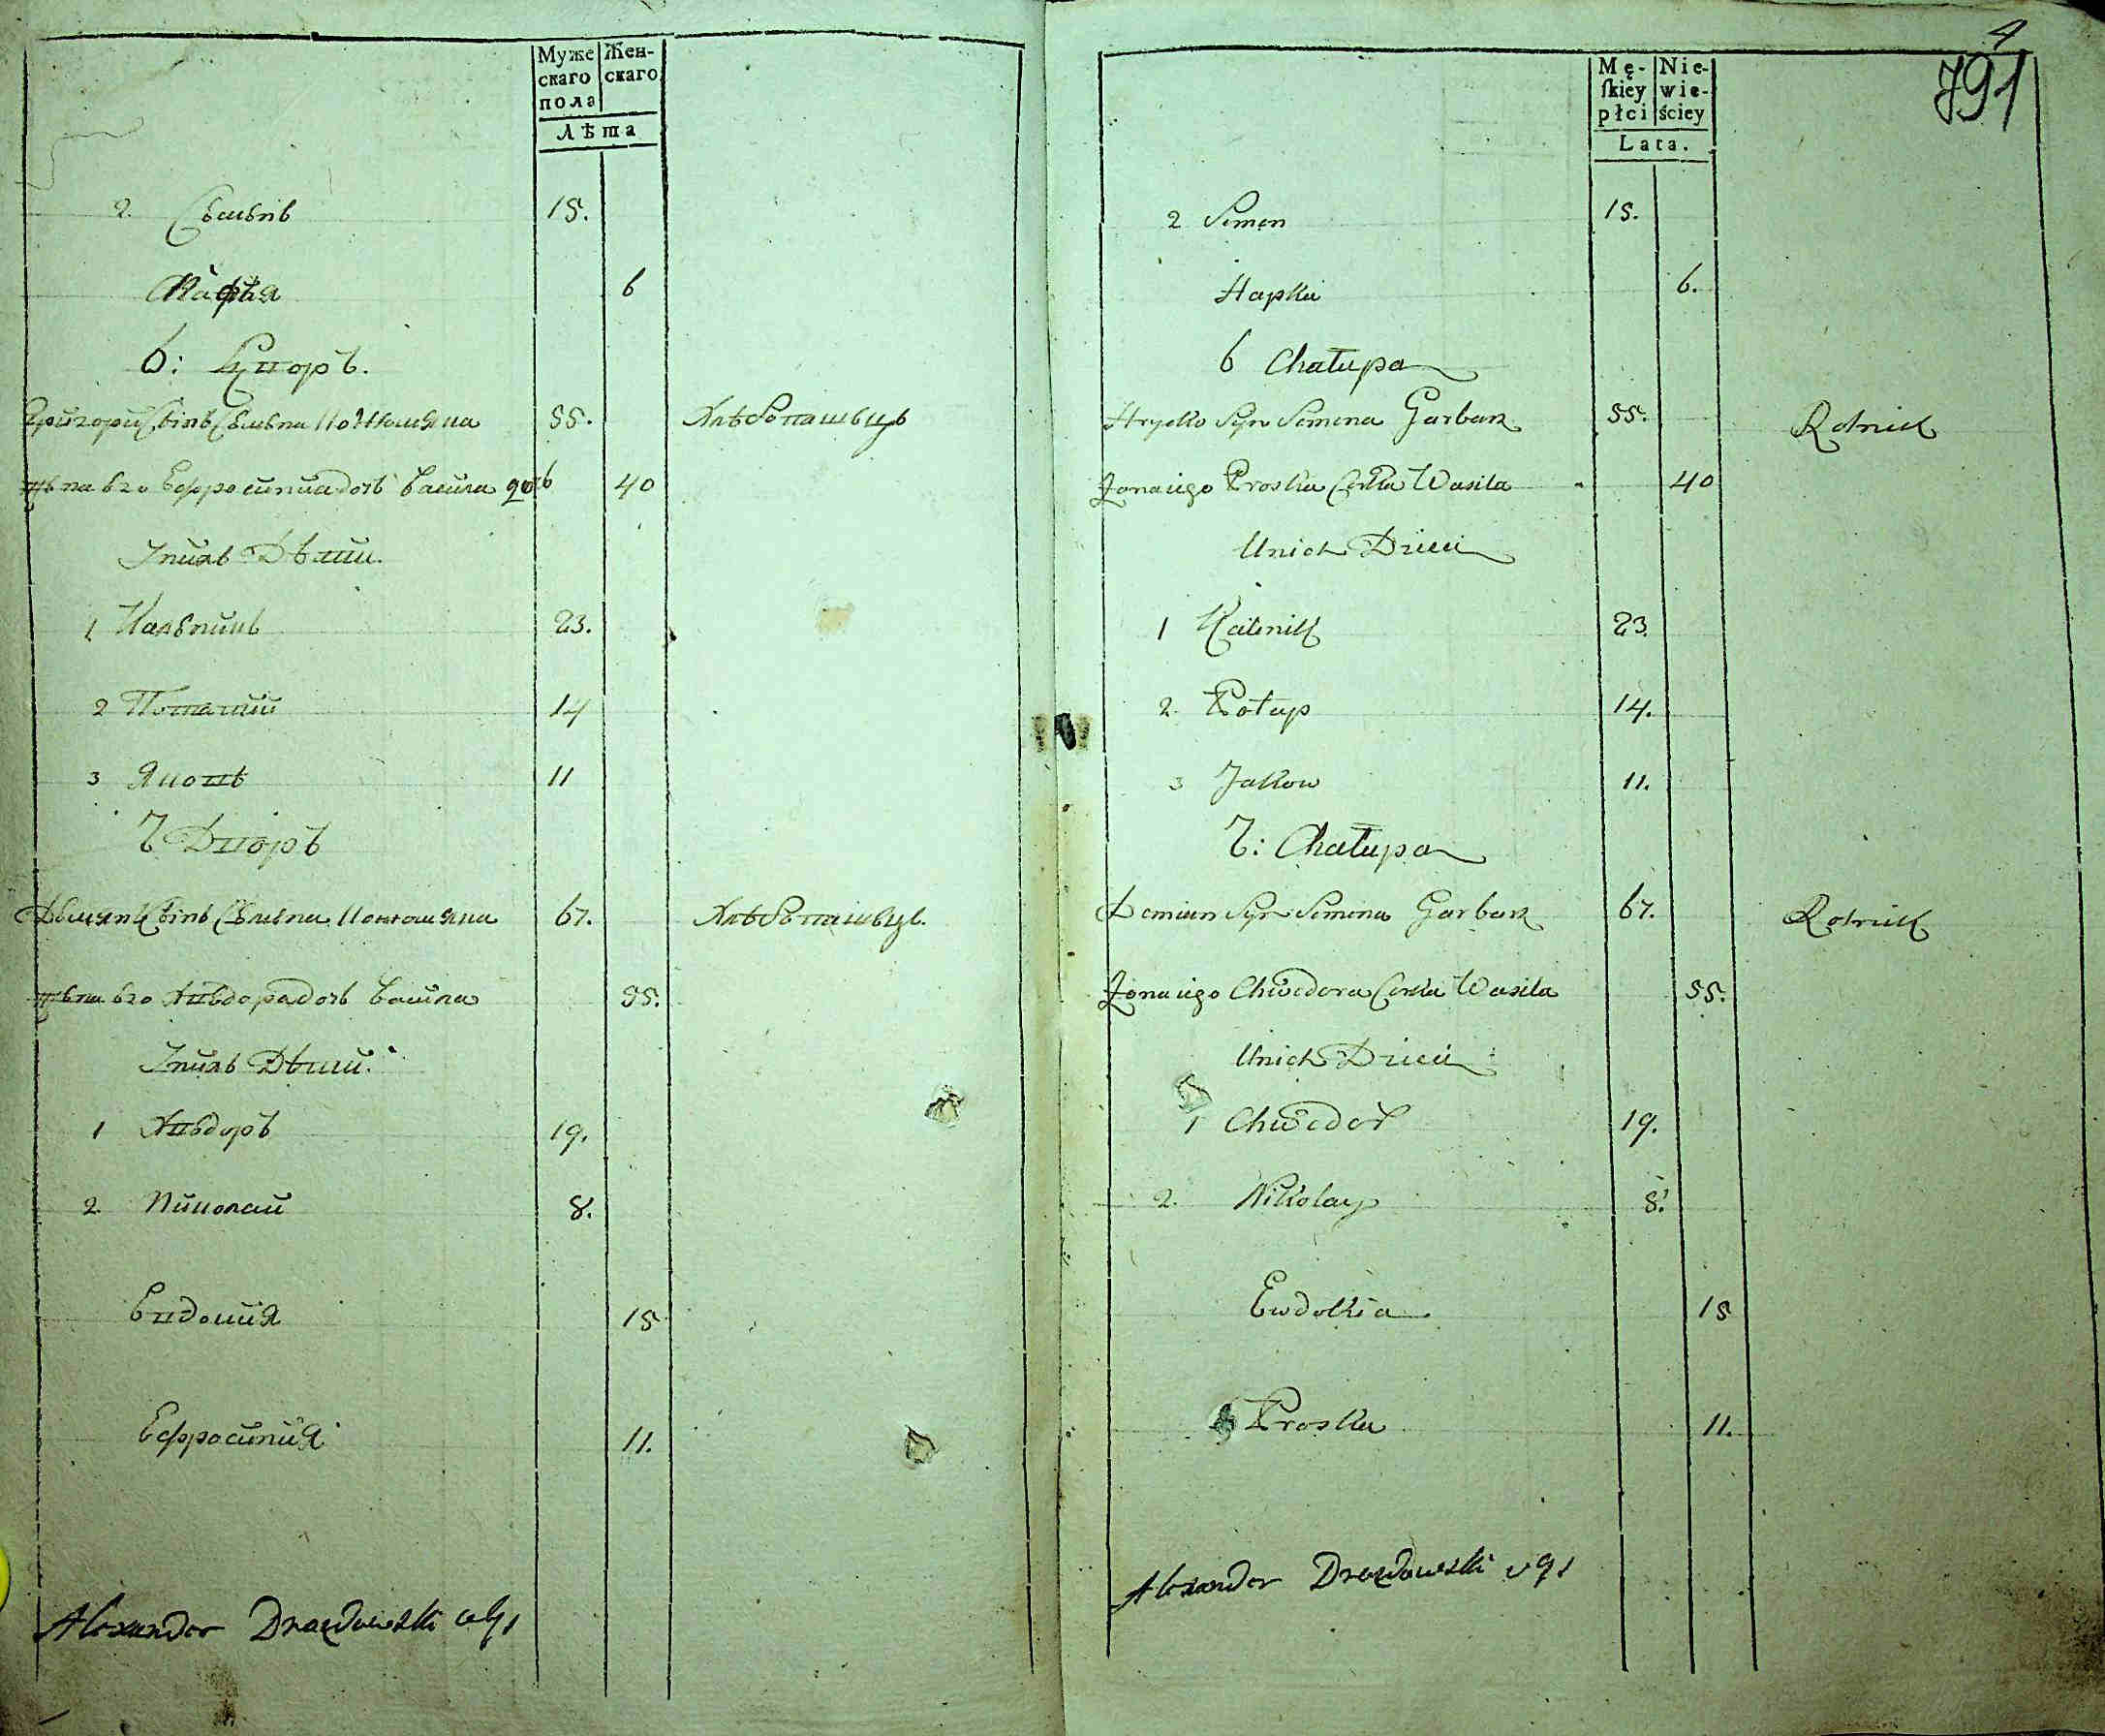 Муже
скаго
пола
Жен-
скаго
Лѣта
2. Семенъ 15.
6
6: Дворъ.
Григорий Сынъ Семена 55. Хлебопашецъ
жена его Ефросиния дочь Василя 40
Ихъ Дети.
1 23.
2 Потапий 14
3 Яковъ 11
7 Дворъ
Демянъ Сынъ Семена 67. Хлебопашецъ.
жена его Хведора дочь Василя 55.
Ихъ Дети.
1 Хведоръ 19.
2. Николай 8.
Евдокия 15
Ефросиния 11.
Alexander
4
791
Mę-
ſkiey
płci
Nie-
wie-
ściey
Lata.
2 Semen 15.
Hapka 6.
6 Chałupa
Hrycko Syn Semena Garbarz 55. Rolnik
Żona iego Proska Corka Wasila 40
Unich Dzieci
1 Kalenik 23.
2. Potap 14.
3 Jakow 11.
7: Chałupa
Demian Syn Semena Garbarz 67. Rolnik
Żona iego Chwedora Corka Wasila 55.
Unich Dzieci
1 Chwedor 19.
2. Nikolay 8.
Ewdokia 15
Proska 11.
Alexander